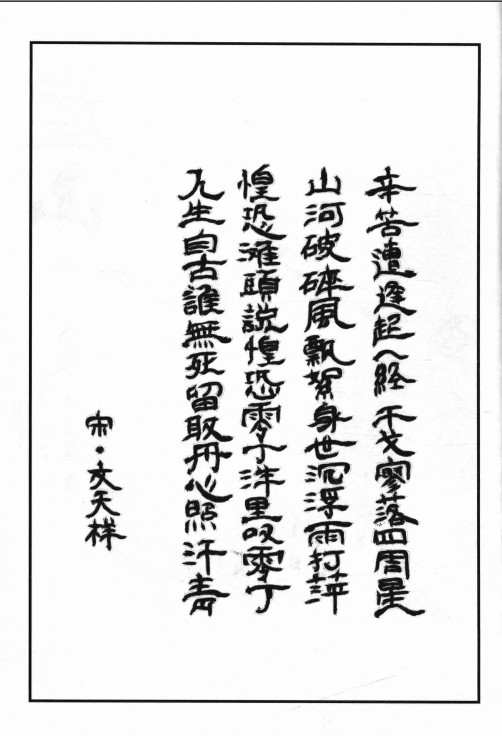 辛苦遭逢起一経干戈寥落四周星
山河破碎風飄絮身世沉浮雨打萍
惶恐滩頭説惶恐零丁洋里叹零丁
人生自古誰無死留取丹心照汗青
宋·文天祥